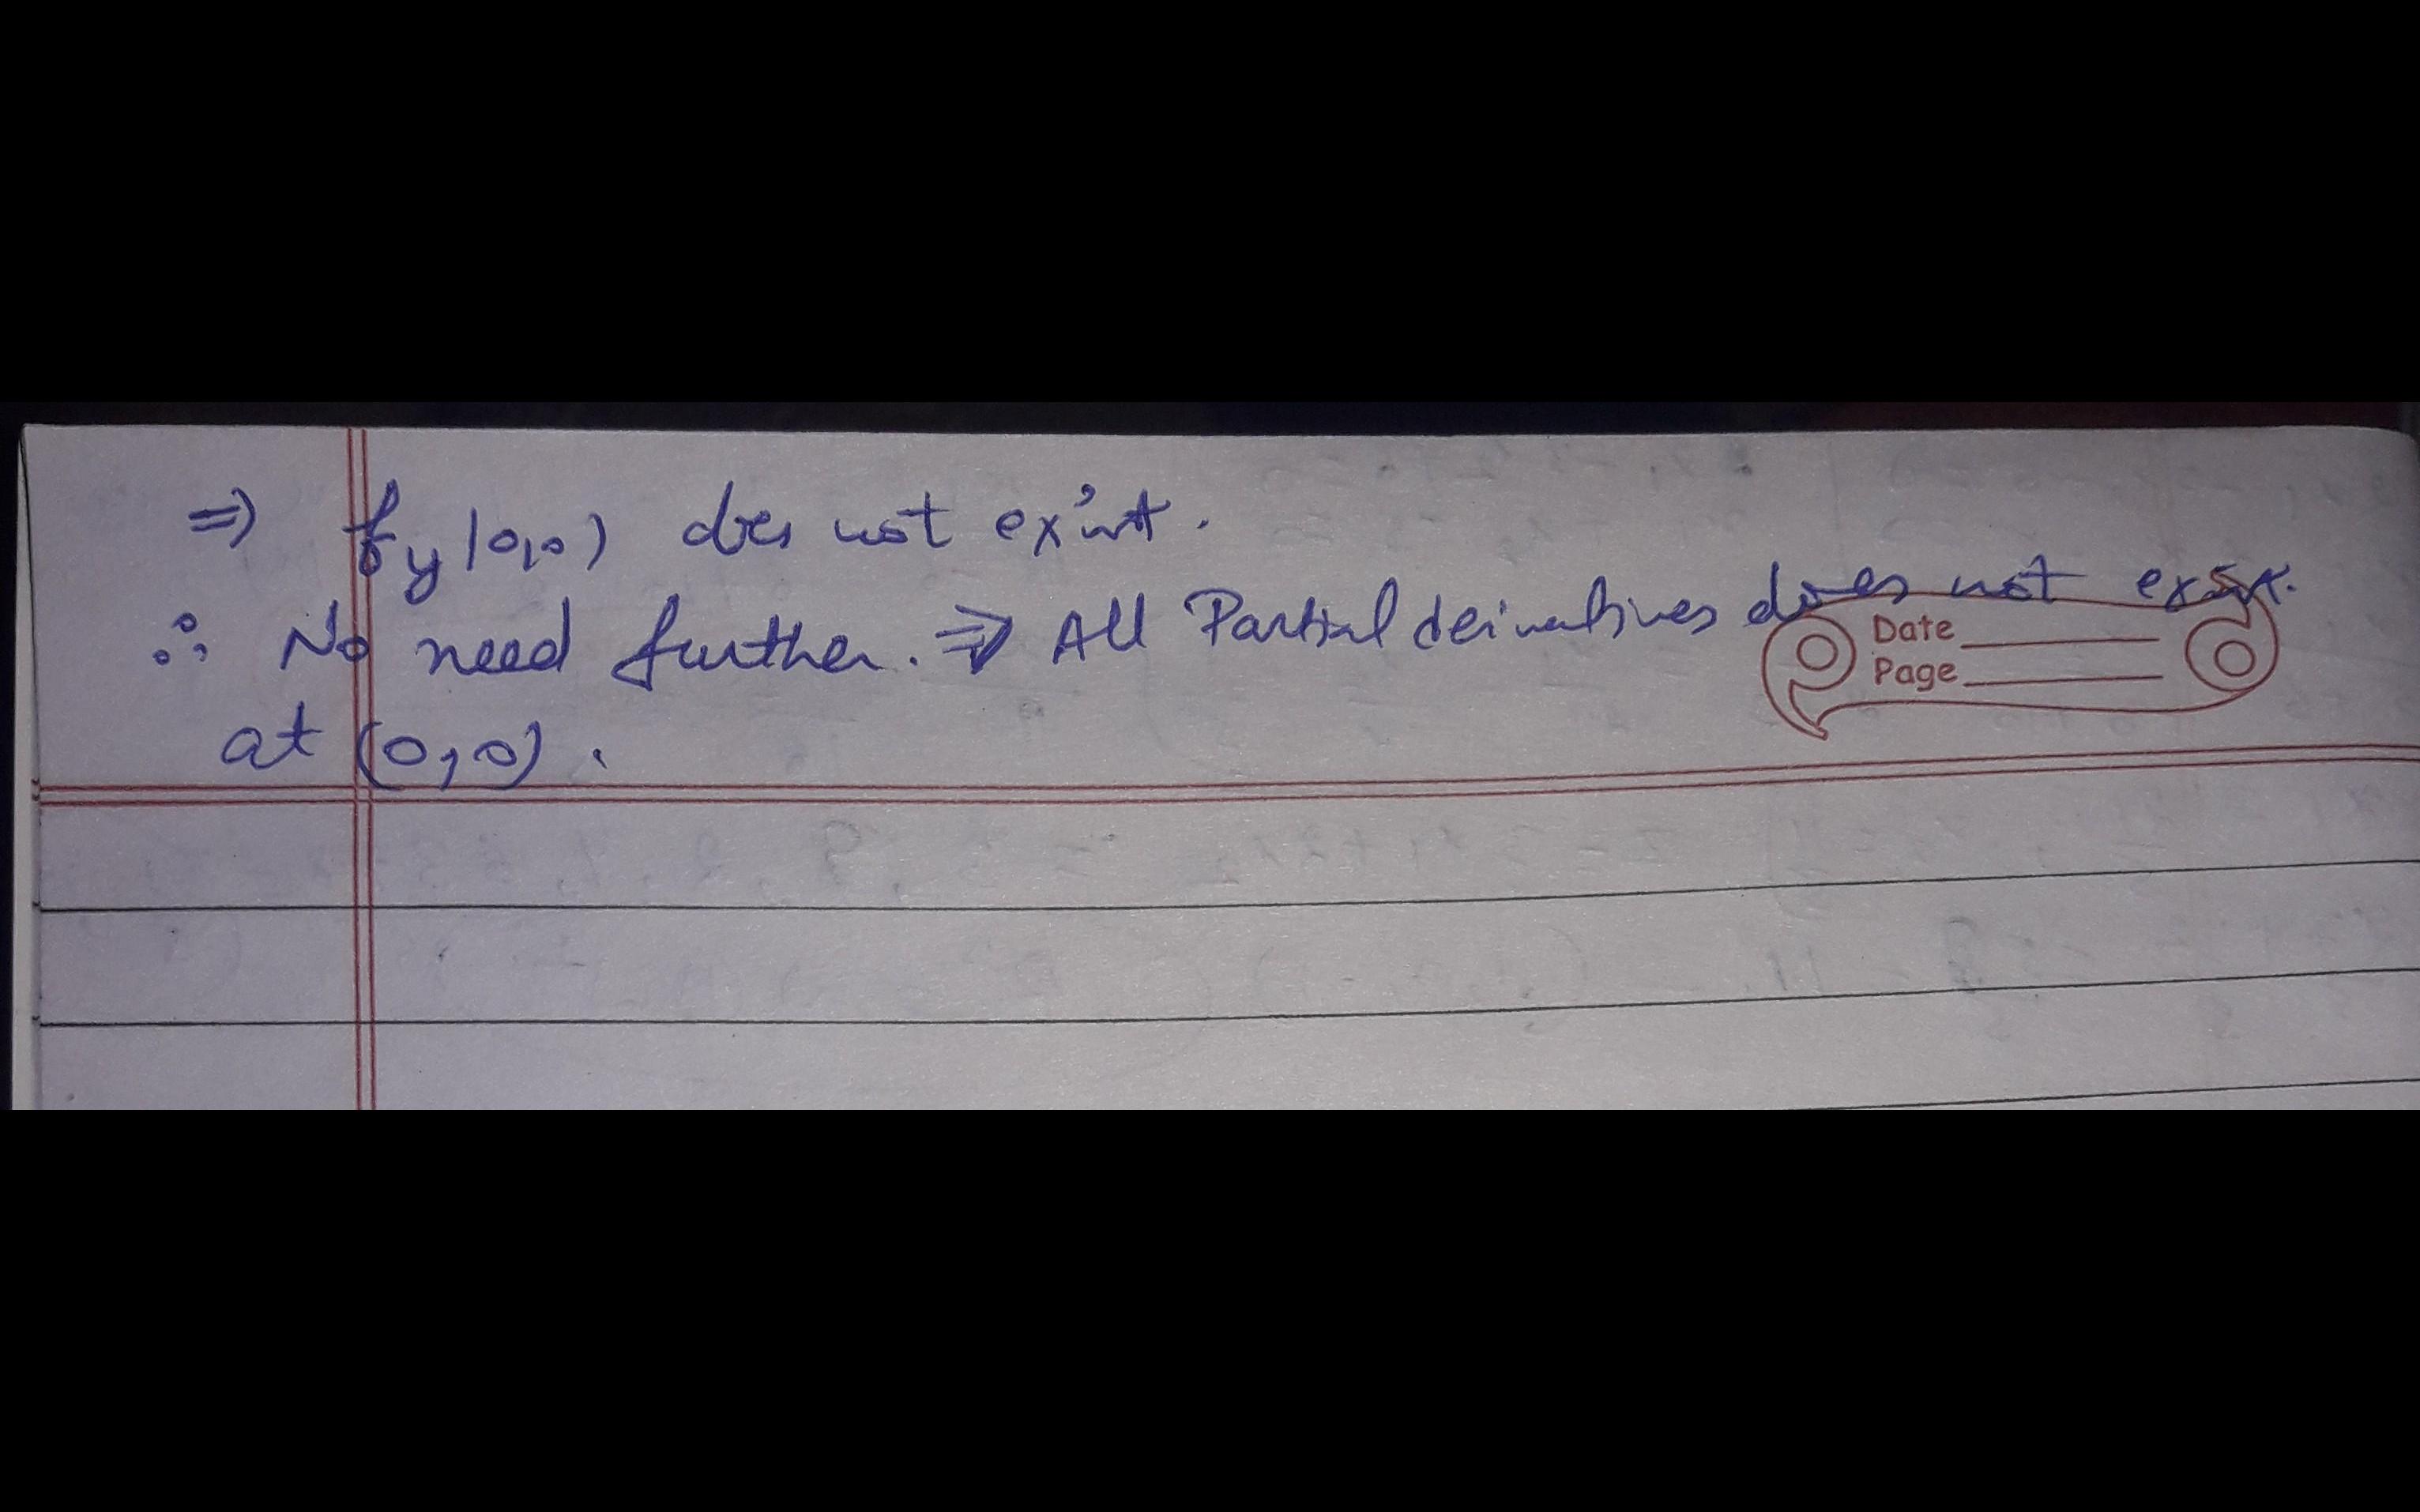 ⇒ fy(0,0) does not exist.
∴ No need further. ⇒ All Partial derivatives does not exist.
Date
Page
at (0,0).